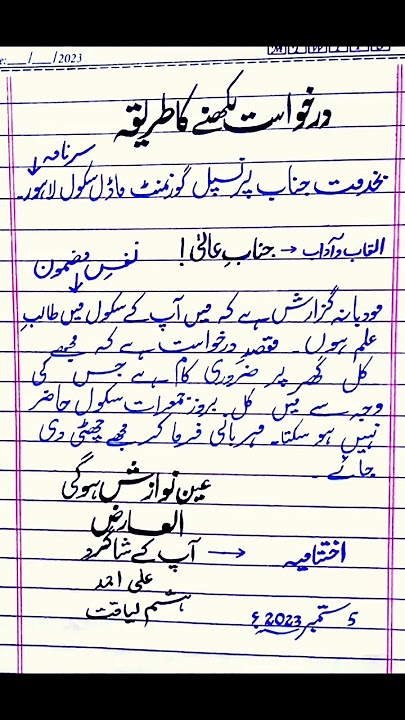 ___/___/2023
M T W T F S
درخواست لکھنے کا طریقہ
سرنامہ
بخدمت جناب پرنسپل گورنمنٹ ماڈل سکول لاہور۔
القاب و آداب → جنابِ عالی!
نفسِ مضمون
مودبانہ گزارش ہے کہ میں آپ کے سکول میں طالبِ
علم ہوں۔ مقصدِ درخواست ہے کہ مجھے
کل گھر پر ضروری کام ہے جس کی
وجہ سے میں کل بروز جمعرات سکول حاضر
نہیں ہو سکتا۔ مہربانی فرما کر مجھے چھٹی دی
جائے۔
عین نوازش ہوگی
العارض
اختتامیہ → آپ کے شاگرد
علی احمد
ہشتم لیاقت
5 ستمبر 2023ء